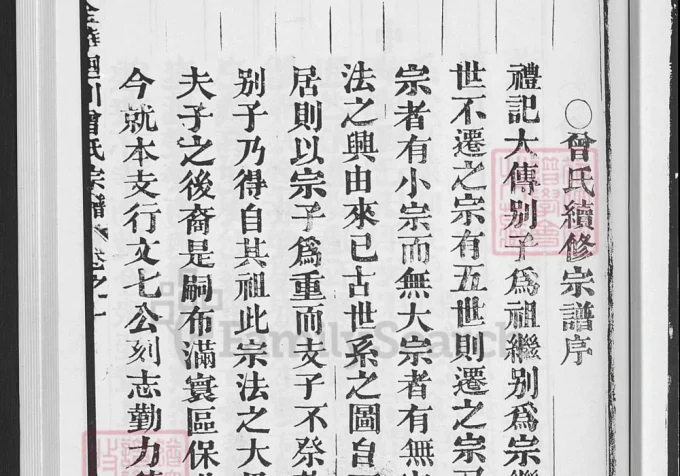 ○曾氏續修宗譜序
禮記大傳別子爲祖繼別爲宗
世不遷之宗有五世則遷之宗
宗者有小宗而無大宗者有無
法之興由來已古世系之圖自
居則以宗子爲重而支子不祭
別子乃得自其祖此宗法之大
夫子之後裔是嗣布滿寰區保
今就本支行文七公刻志勤力
曾氏宗譜 卷之一
FamilySearch